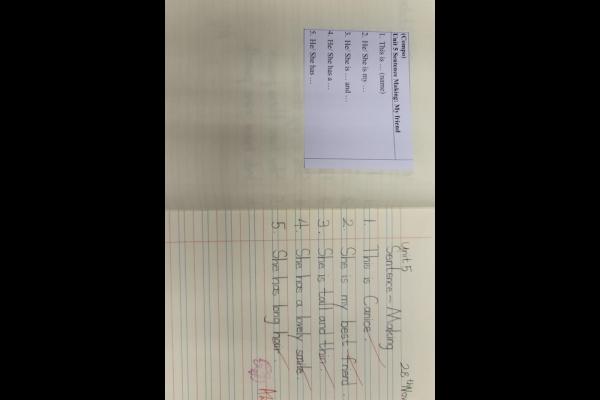 (Compo)
Unit 5 Sentence Making: My friend
1. This is ... (name)
2. He/ She is my ...
3. He/ She is ... and ...
4. He/ She has a ...
5. He/ She has ...
28th Nov
Unit 5
Sentence - Making
1. This is Canice.
2. She is my best friend.
3. She is tall and thin.
4. She has a lovely smile.
5. She has long hair.